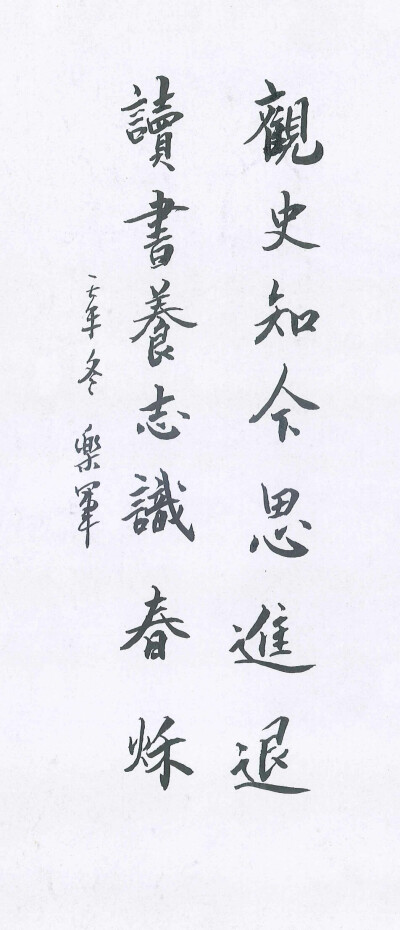 觀史知今思進退
讀書養志識春秌
一七年冬 樂軍